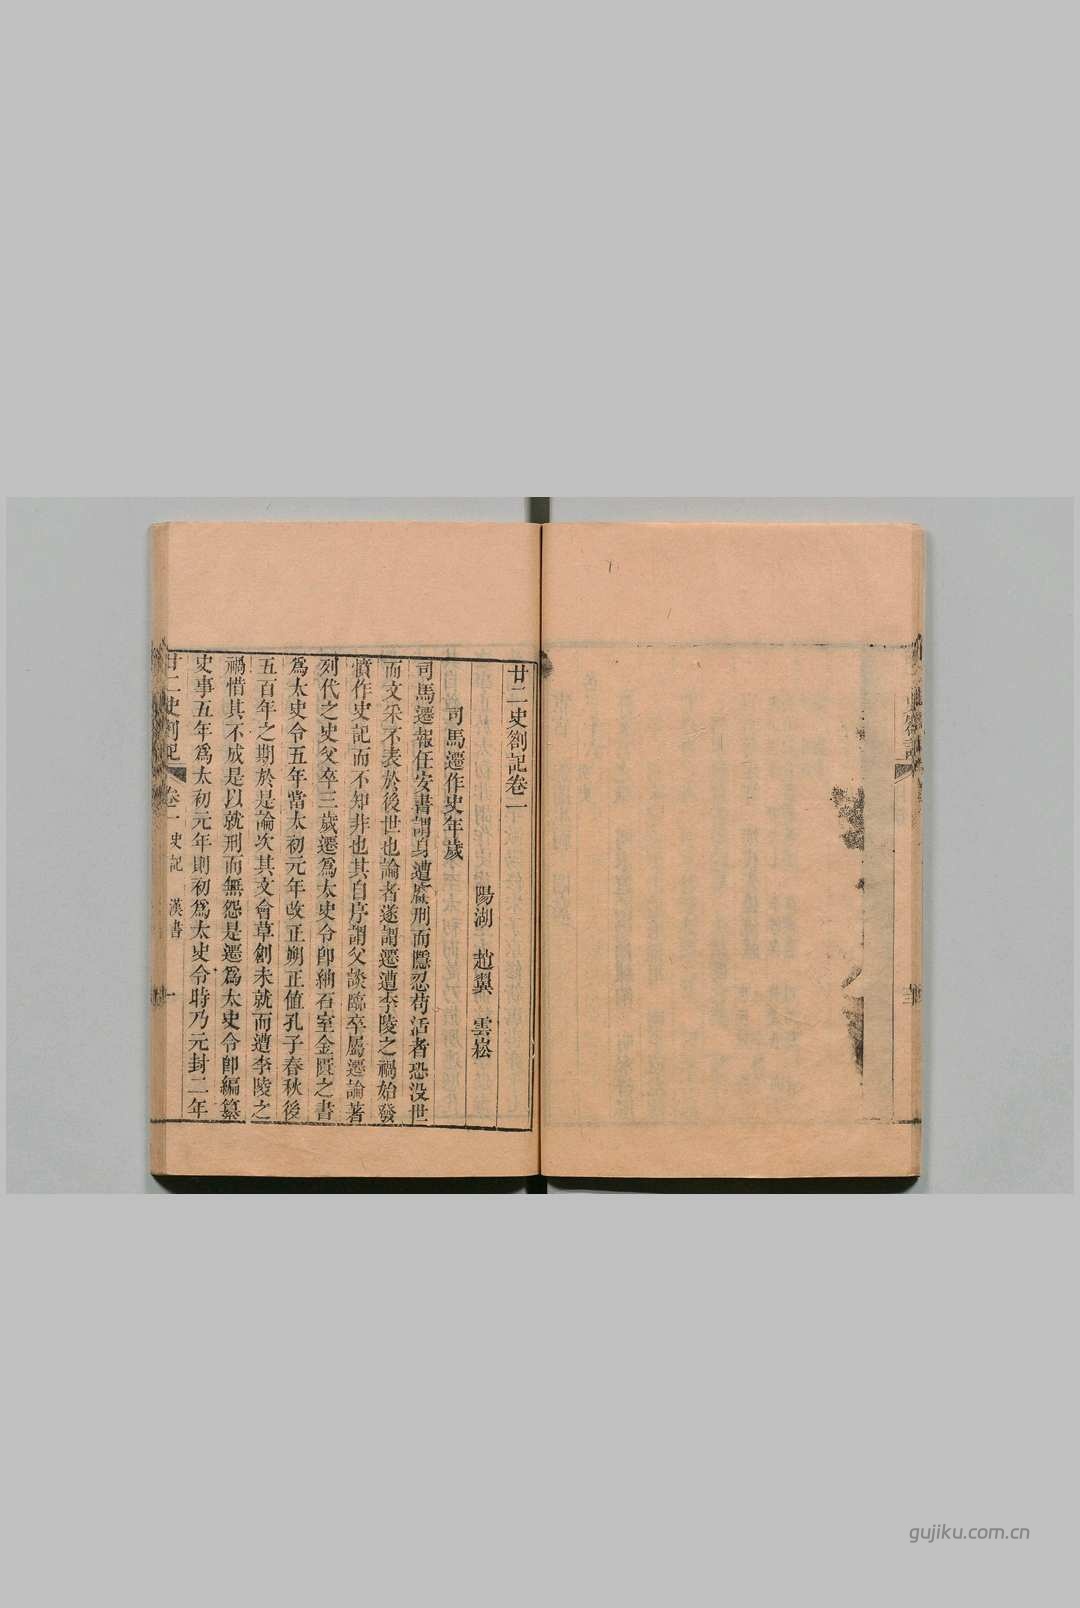 廿二史劄記卷一
陽湖 趙翼 雲崧
司馬遷作史年歲
司馬遷報任安書謂身遭腐刑而隱忍苟活者恐没世
而文采不表於後世也論者遂謂遷遭李陵之禍始發
憤作史記而不知非也其自序謂父談臨卒屬遷論著
列代之史父卒三歲遷爲太史令卽紬石室金匱之書
爲太史令五年當太初元年改正朔正値孔子春秋後
五百年之期於是論次其文會草創未就而遭李陵之
禍惜其不成是以就刑而無怨是遷爲太史令卽編纂
史事五年爲太初元年則初爲太史令時乃元封二年
廿二史劄記 卷一 史記 漢書 一
gujiku.com.cn